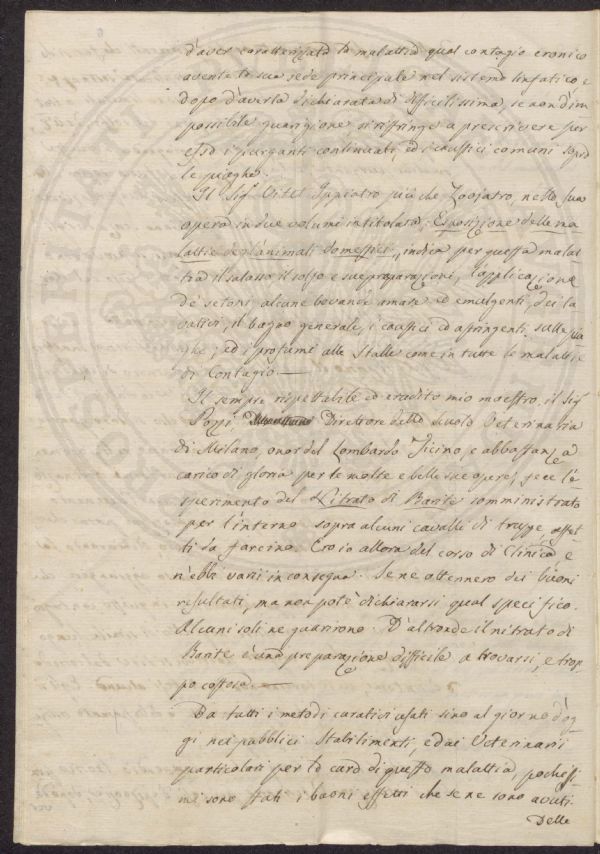 d'aver caratterizzata la malattia qual contagio cronico
avente la sua sede principale nel sistema linfatico, e
dopo d'averla dichiarata di difficilissima, se non d'im
possibile guarigione si ristringe a prescrivere per
essa i purganti continuati, ed i caustici comuni sopra
le piaghe.
Il Sig.r Vitet Ippiatro più che Zoojatro, nella sua
opera in due volumi intitolata, Esposizione delle ma
lattie degl'animali domestici,, indica per questa malat
tia il salasso il solfo e sue preparazioni, l'applicazione
de' setoni, alcune bevande amare ed emulgenti, dei la
vativi, il bagno generale, i caustici ed astringenti sulle pia
ghe; ed i profumi alle Stalle come in tutte le malattie
di Contagio.—
Il sempre rispettabile ed erudito mio maestro, il Sig.r
Pozzi, Direttore della Scuola Veterinaria
di Milano, onor del Lombardo Ticino, e abbastanza
carico di gloria per le molte e belle sue opere, fece l'e
sperimento del Nitrato di Barite somministrato
per l'interno sopra alcuni cavalli di truppe affet
ti da farcino. Ero io allora del corso di Clinica e
n'ebbi varii in consegna. Se ne ottennero dei buoni
resultati, ma non potè dichiararsi qual specifico.
Alcuni soli ne guarirono. D'altronde il nitrato di
Barite è una preparazione difficile a trovarsi, e trop
po costosa.—
Da tutti i metodi curativi usati sino al giorno d'og
gi nei pubblici Stabilimenti, e dai Veterinarii
particolari per la cura di questa malattia, pochissi
mi sono stati i buoni effetti che se ne sono avuti.
Delle